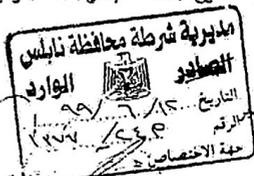 مديرية شرطة محافظة نابلس
الصادر الوارد
التاريخ ١٢/٦/٩٩
الرقم
جهة الاختصاص